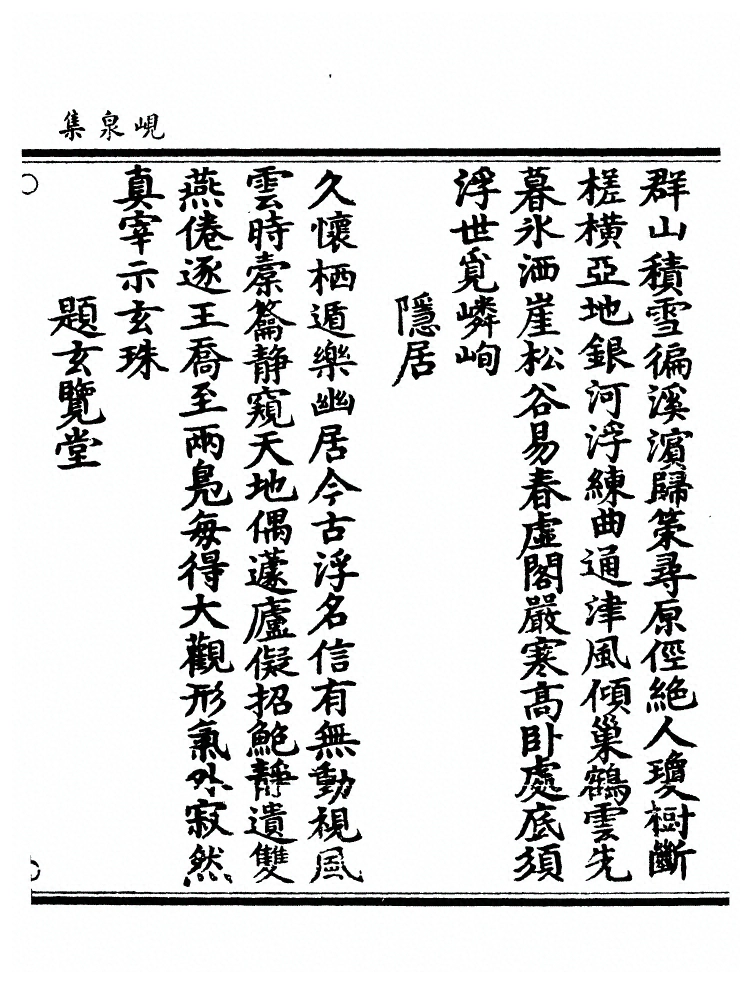 峴泉集
群山積雪徧溪濱歸策尋原徑絶人瓊樹斷
槎橫亞地銀河浮練曲通津風傾巢鶴雲先
暮氷洒崖松谷易春虛閣嚴寒髙卧處底須
浮世覓嶙峋
隱居
久懷栖遁樂幽居今古浮名信有無動視風
雲時橐籥靜窺天地偶蘧廬儗招鮑靜遺雙
燕倦逐王喬至兩鳧每得大觀形氣外寂然
真宰示玄珠
題玄覽堂